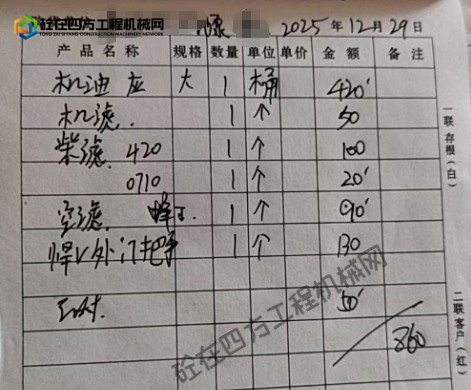 砼在四方工程机械网
TONG ZAI SI FANG CONSTRUCTION MACHINERY NETWORK
2025 年 12 月 29 日
产品名称 规格 数量 单位 单价 金额 备注
机油 大 1 桶 420
机滤. 1 个 50
柴滤. 420 1 个 100
0710 1 个 20
空滤. 1 个 90
外门把手 1 个 130
工时. 50
860
一联存根(白)
二联客户(红)
砼在四方工程机械网